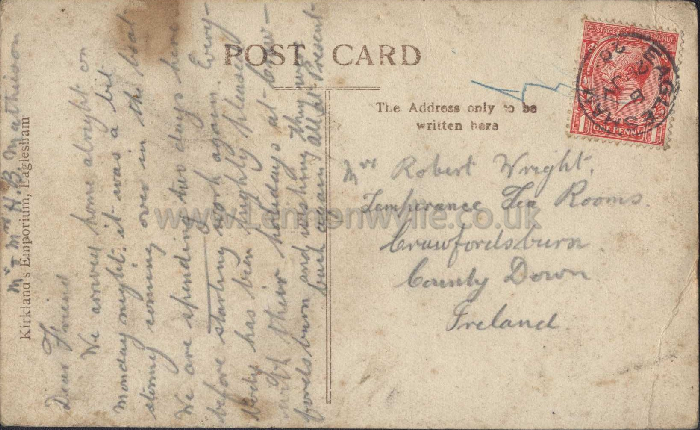 POST CARD
The Address only to be
written here
EAGLESHAM
ONE PENNY
Mrs Robert Wright.
Temperance Tea Rooms.
Crawfordsburn.
County Down
Ireland.
www.lennonwylie.co.uk
Kirkland's Emporium, Eaglesham
Mr & Mrs H.B. Mathieson
Dear Friend
We arrived home alright on
Monday night. it was a bit
stormy coming over in the boat
We are spending two days here
before starting work again. Every-
body has been highly pleased
with their holidays at Craw-
fordsburn and wishing they were
back again all at Present